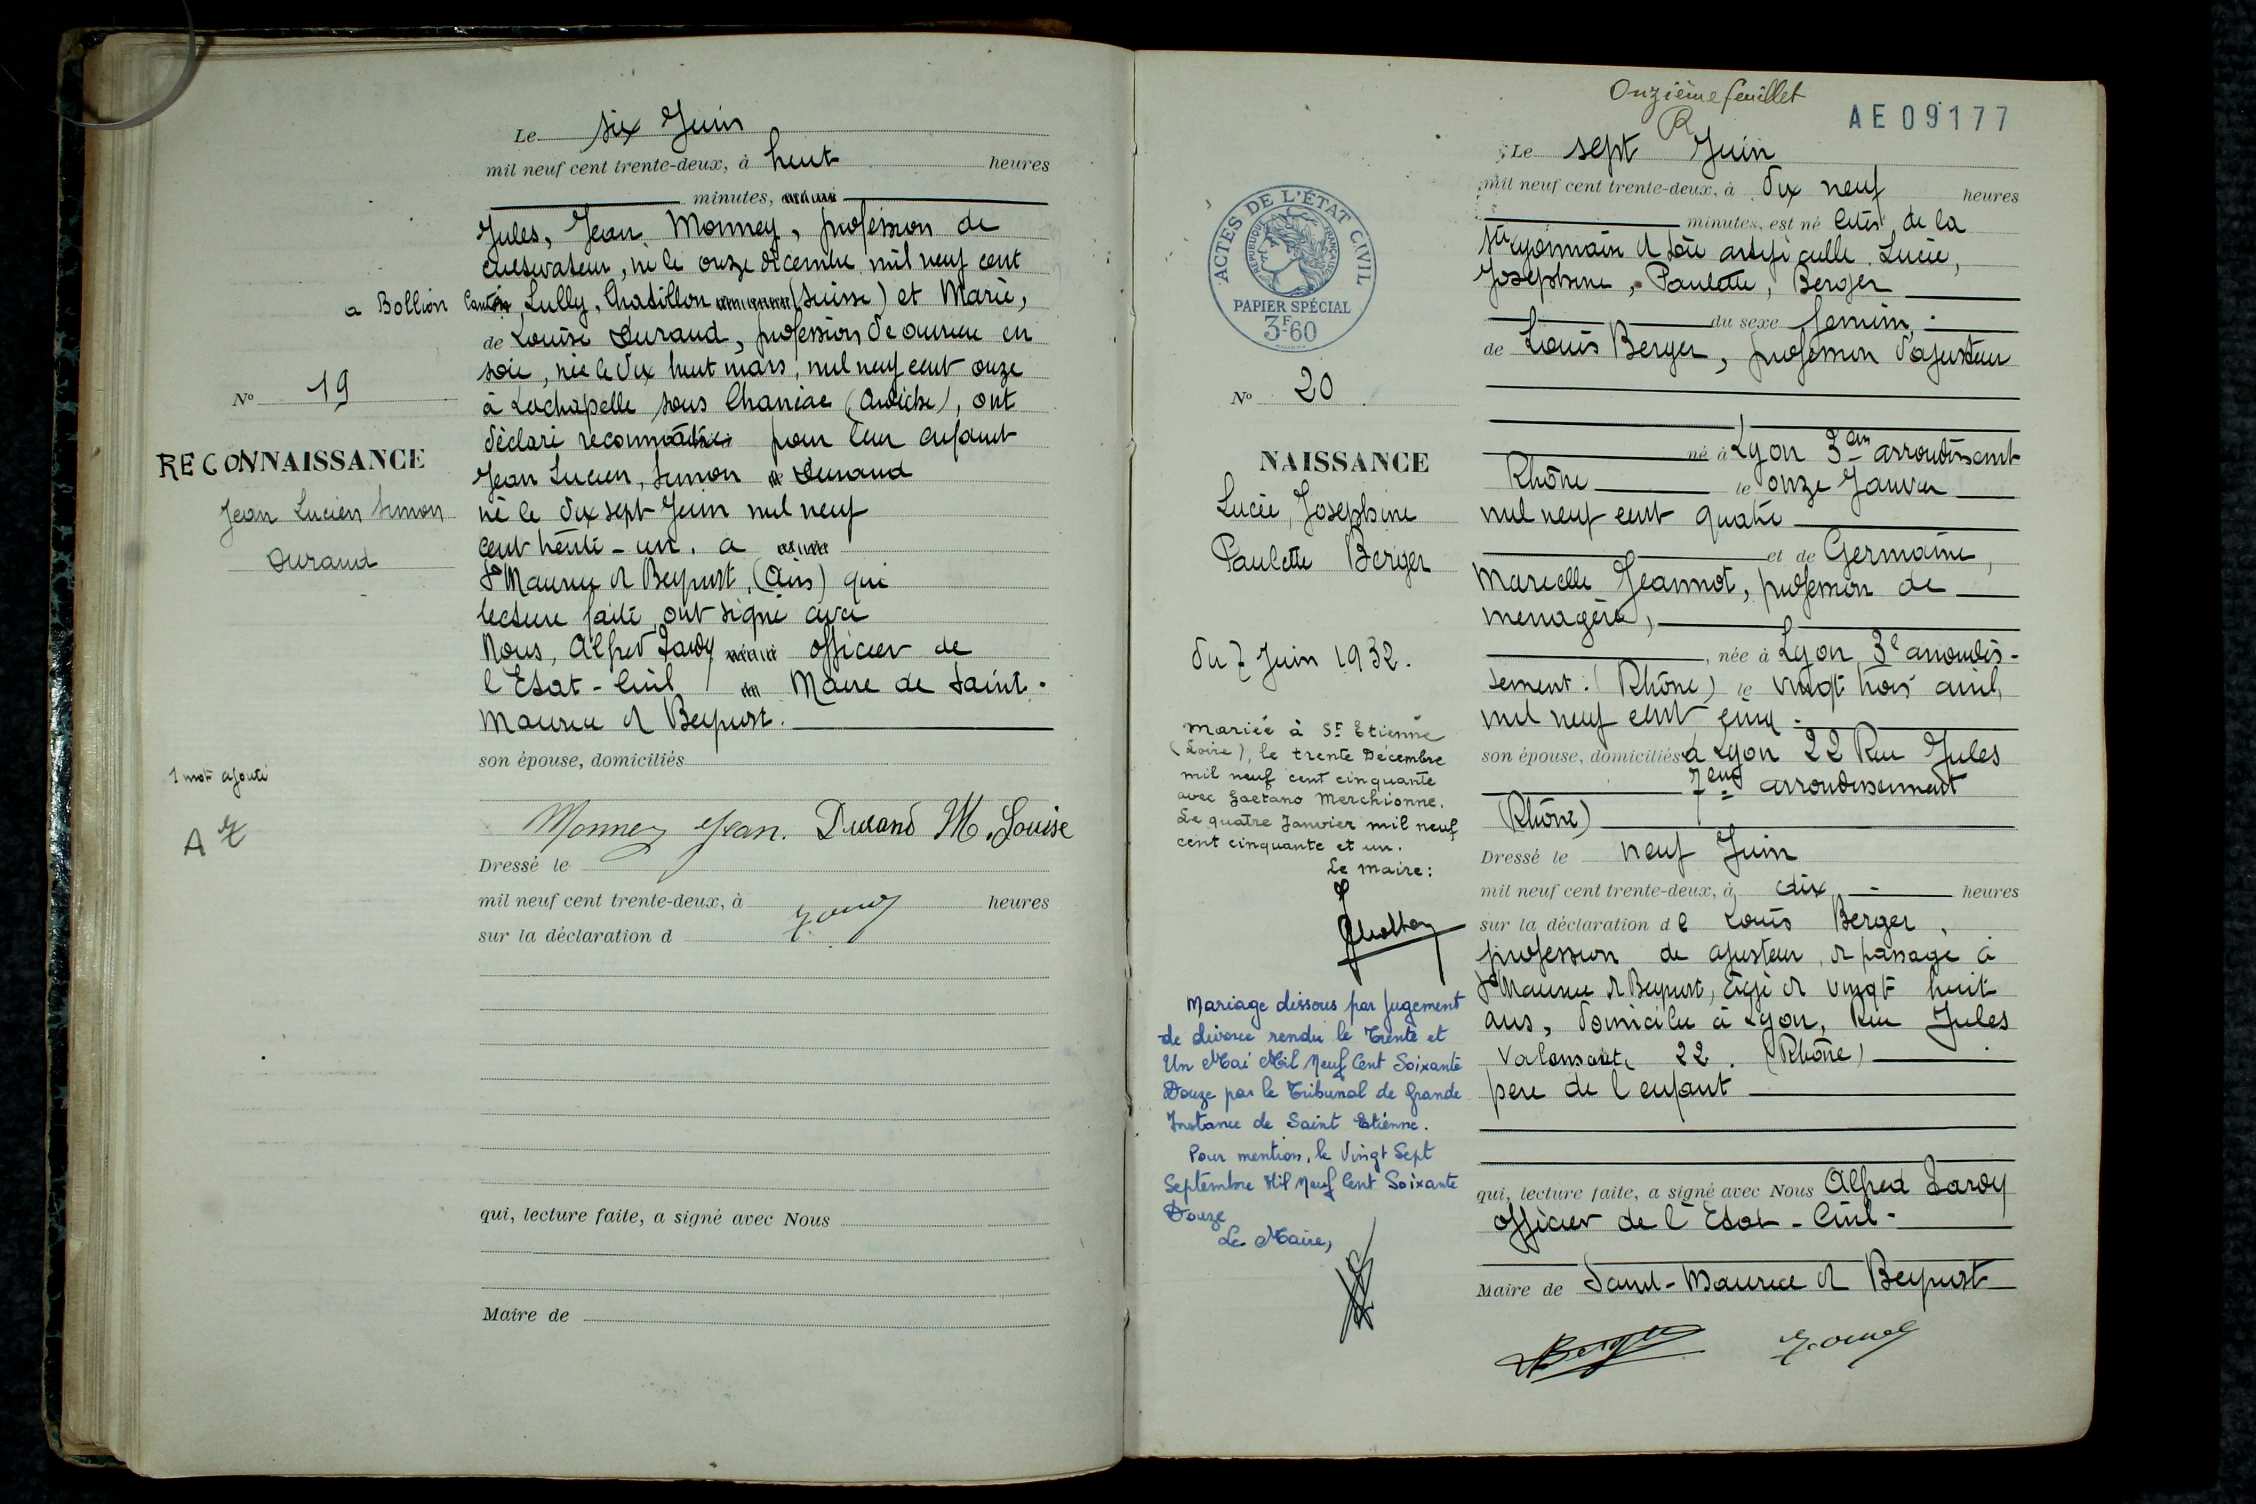 Le six Juin
mil neuf cent trente-deux, à huit heures
minutes,
Jules, Jean Monney, profession de
cultivateur, né le onze décembre mil neuf cent
a Bollion Canton Lully, Chatillon (Suisse) et Marie,
de Louise Durand, profession de ouvrière en
soie, née le dix huit mars, mil neuf cent onze
à Lachapelle sous Chanéac (Ardèche), ont
déclaré reconnaître pour leur enfant
Jean Lucien, Simon Durand
né le dix sept Juin mil neuf
cent trente-un. a
St Maurice de Beynost, (Ain) qui
lecture faite, ont signé avec
Nous, Alfred Laroy officier de
l'Etat-Civil Maire de Saint-
Maurice de Beynost.
son épouse, domiciliés
Monney Jean. Durand M. Louise
Dressé le
mil neuf cent trente-deux, à heures
sur la déclaration d
qui, lecture faite, a signé avec Nous
Maire de
No 19
RECONNAISSANCE
Jean Lucien Simon
Durand
1 mot ajouté
Onzième feuillet
AE09177
ACTES DE L'ÉTAT CIVIL
RÉPUBLIQUE FRANÇAISE
PAPIER SPÉCIAL
3F60
No 20
NAISSANCE
Lucie, Josephine
Paulette Berger
du 7 Juin 1932.
Mariée à St Etienne
(Loire), le trente Décembre
mil neuf cent cinquante
avec Gaetano Merchionne.
Le quatre Janvier mil neuf
cent cinquante et un.
Le maire:
Mariage dissous par Jugement
de divorce rendu le Trente et
Un Mai Mil Neuf Cent Soixante
Douze par le Tribunal de Grande
Instance de Saint Etienne.
Pour mention, le Vingt Sept
Septembre Mil Neuf Cent Soixante
Douze
Le Maire,
Le sept Juin
mil neuf cent trente-deux, à dix neuf heures
minutes, est né cités de la
Sté Lyonnaise de Soie artificielle Lucie,
Josephine, Paulette, Berger
du sexe feminin.
de Louis Berger, profession d'ajusteur
né à Lyon 3em arrondissemt
Rhône le onze Janvier
mil neuf cent quatre
et de Germaine,
Marcelle Jeannot, profession de
menagère,
, née à Lyon 3e arrondis-
sement. (Rhône) le vingt trois avril
mil neuf cent cinq.
son épouse, domiciliés à Lyon 22 Rue Jules
7em arrondissement
(Rhône)
Dressé le neuf Juin
mil neuf cent trente-deux, à dix heures
sur la déclaration de Louis Berger,
profession de ajusteur, de passage à
St Maurice de Beynost, âgé de vingt huit
ans, domicilié à Lyon, Rue Jules
22. (Rhône)
père de l'enfant
qui, lecture faite, a signé avec Nous Alfred Laroy
officier de l'Etat-Civil-
Maire de Saint-Maurice de Beynost
Berger